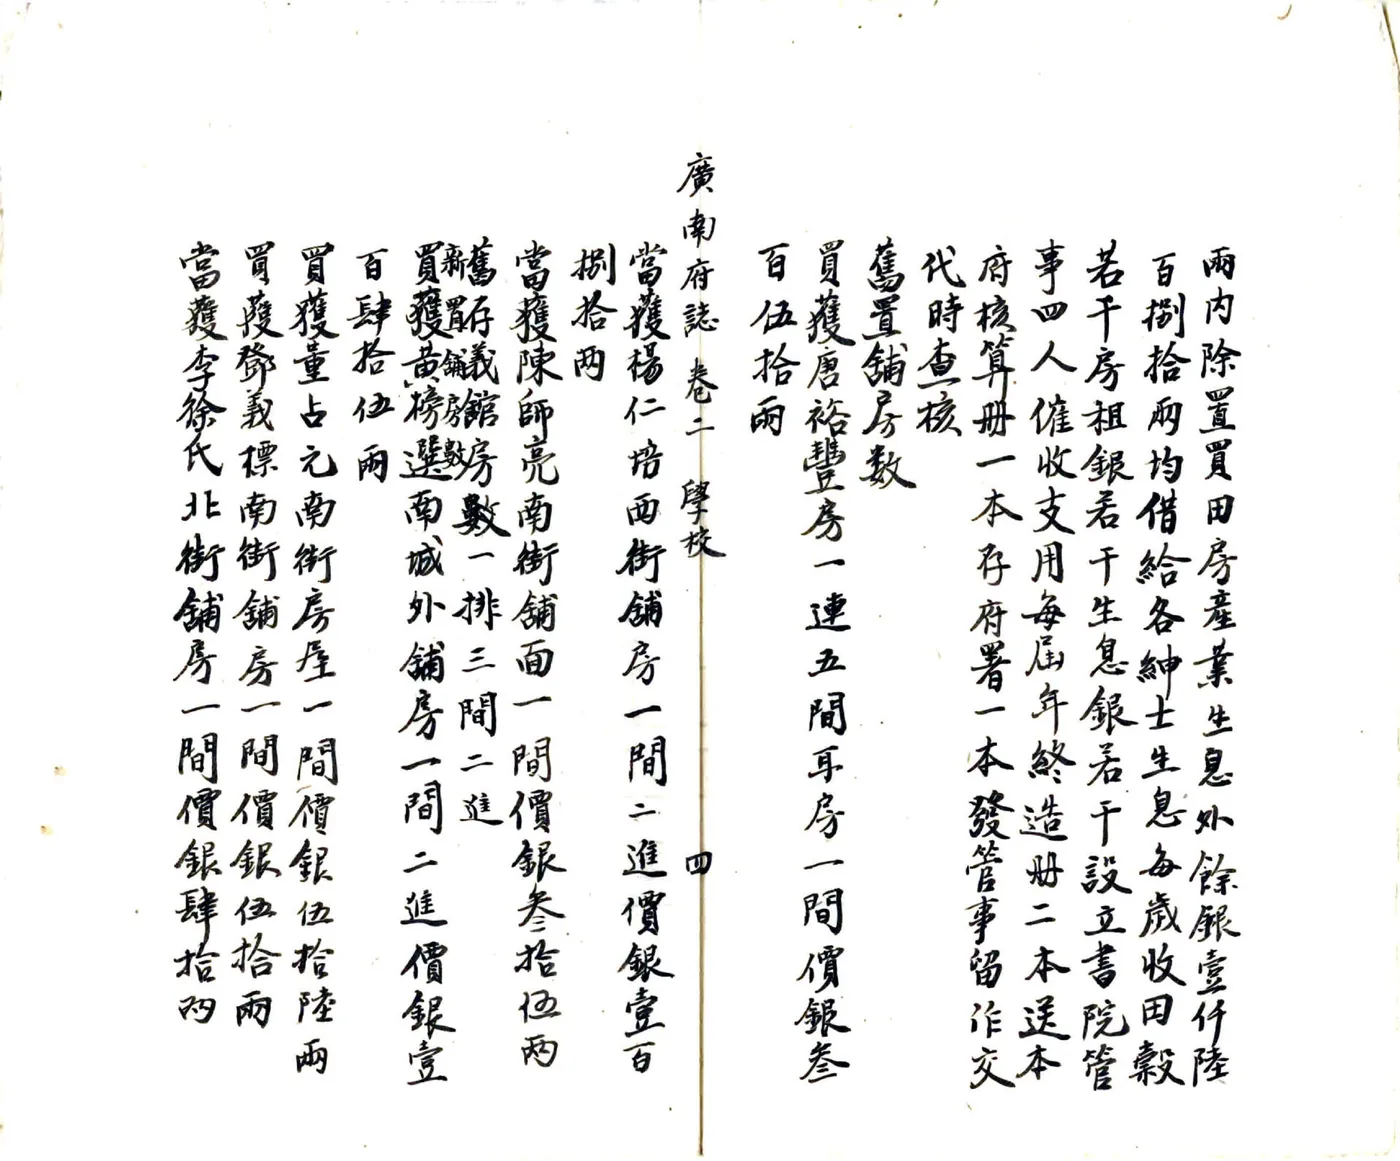 兩內除置買田房產業生息外餘銀壹仟陸
百捌拾兩均借給各紳士生息每歲收田糓
若干房租銀若干生息銀若干設立書院管
事四人催收支用每屆年終造册二本送本
府核算册一本存府署一本發管事留作交
代時查核
舊置舖房数
買獲唐裕豐房一連五間耳房一間價銀叁
百伍拾兩
廣南府誌 卷二 學校 四
當獲楊仁培西街舖房一間二進價銀壹百
捌拾两
當獲陳師亮南街舖面一間價銀叁拾伍两
舊存義舘房數一排三間二進
新置舖房數
買獲黃榜選南城外舖房一間二進價銀壹
百肆拾伍兩
買獲董占元南街房屋一間價銀伍拾陸兩
買獲鄧義標南街舖房一間價銀伍拾兩
當獲李徐氏北街舖房一間價銀肆拾兩